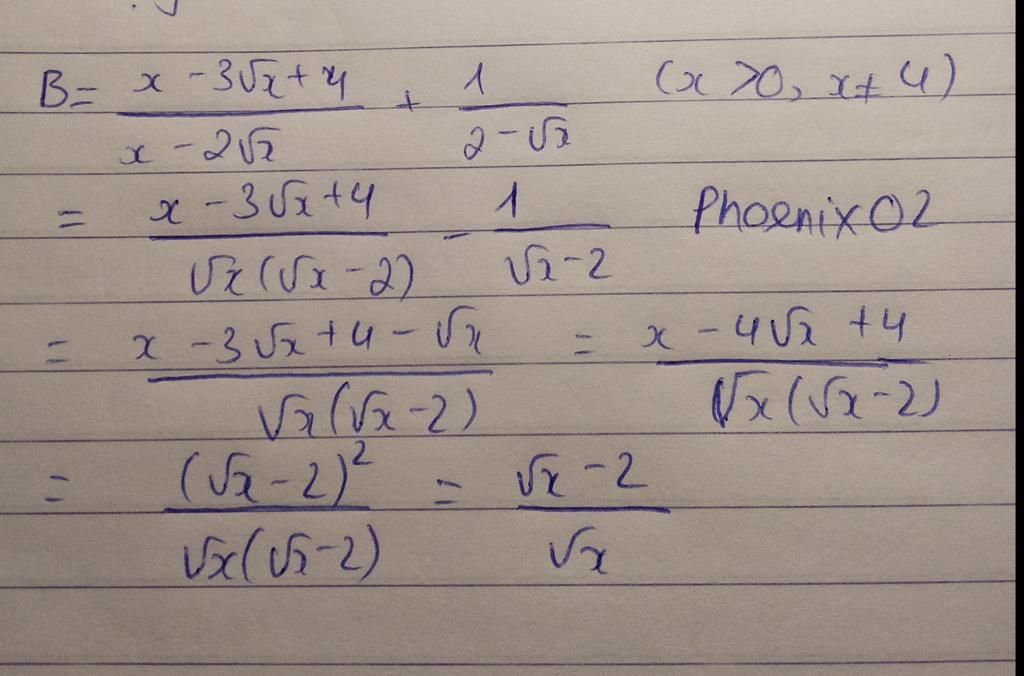 B = (x - 3√x + 4)/(x - 2√x) + 1/(2 - √x) (x > 0, x ≠ 4)
= (x - 3√x + 4)/(√x(√x - 2)) - 1/(√x - 2) Phoenix02
= (x - 3√x + 4 - √x)/(√x(√x - 2)) = (x - 4√x + 4)/(√x(√x - 2))
= (√x - 2)²/(√x(√x - 2)) = (√x - 2)/√x